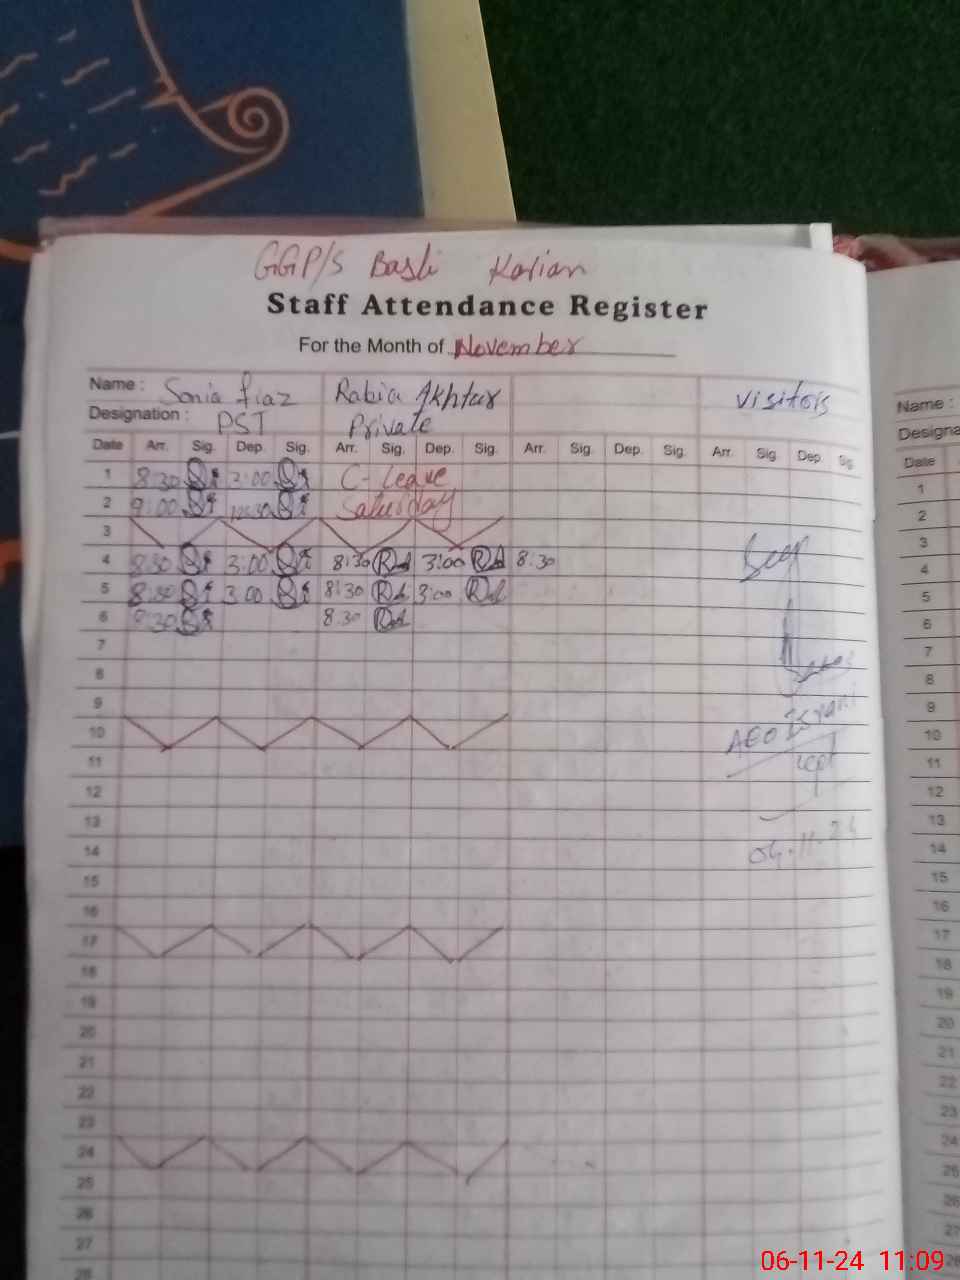 GGP/S Basti Kalian
Staff Attendance Register
For the Month of November
Name : Sonia fiaz Rabia Akhtar visitors
Designation : PST Private
Date Arr. Sig. Dep. Sig. Arr. Sig. Dep. Sig. Arr. Sig. Dep. Sig. Arr. Sig. Dep. Sig.
1 8:30 2:00 C-leave
2 9:00 12:30 Saturday
3
4 8:30 3:00 8:30 3:00 8:30
5 8:30 3:00 8:30 3:00
6 8:30 8:30
7
8
9
10
AEO
11
12
13
14
15
16
17
18
19
20
21
22
23
24
25
26
27
28
Name :
Date
1
2
3
4
5
6
7
8
9
10
11
12
13
14
15
16
17
18
19
20
21
22
23
24
25
26
27
06-11-24 11:09